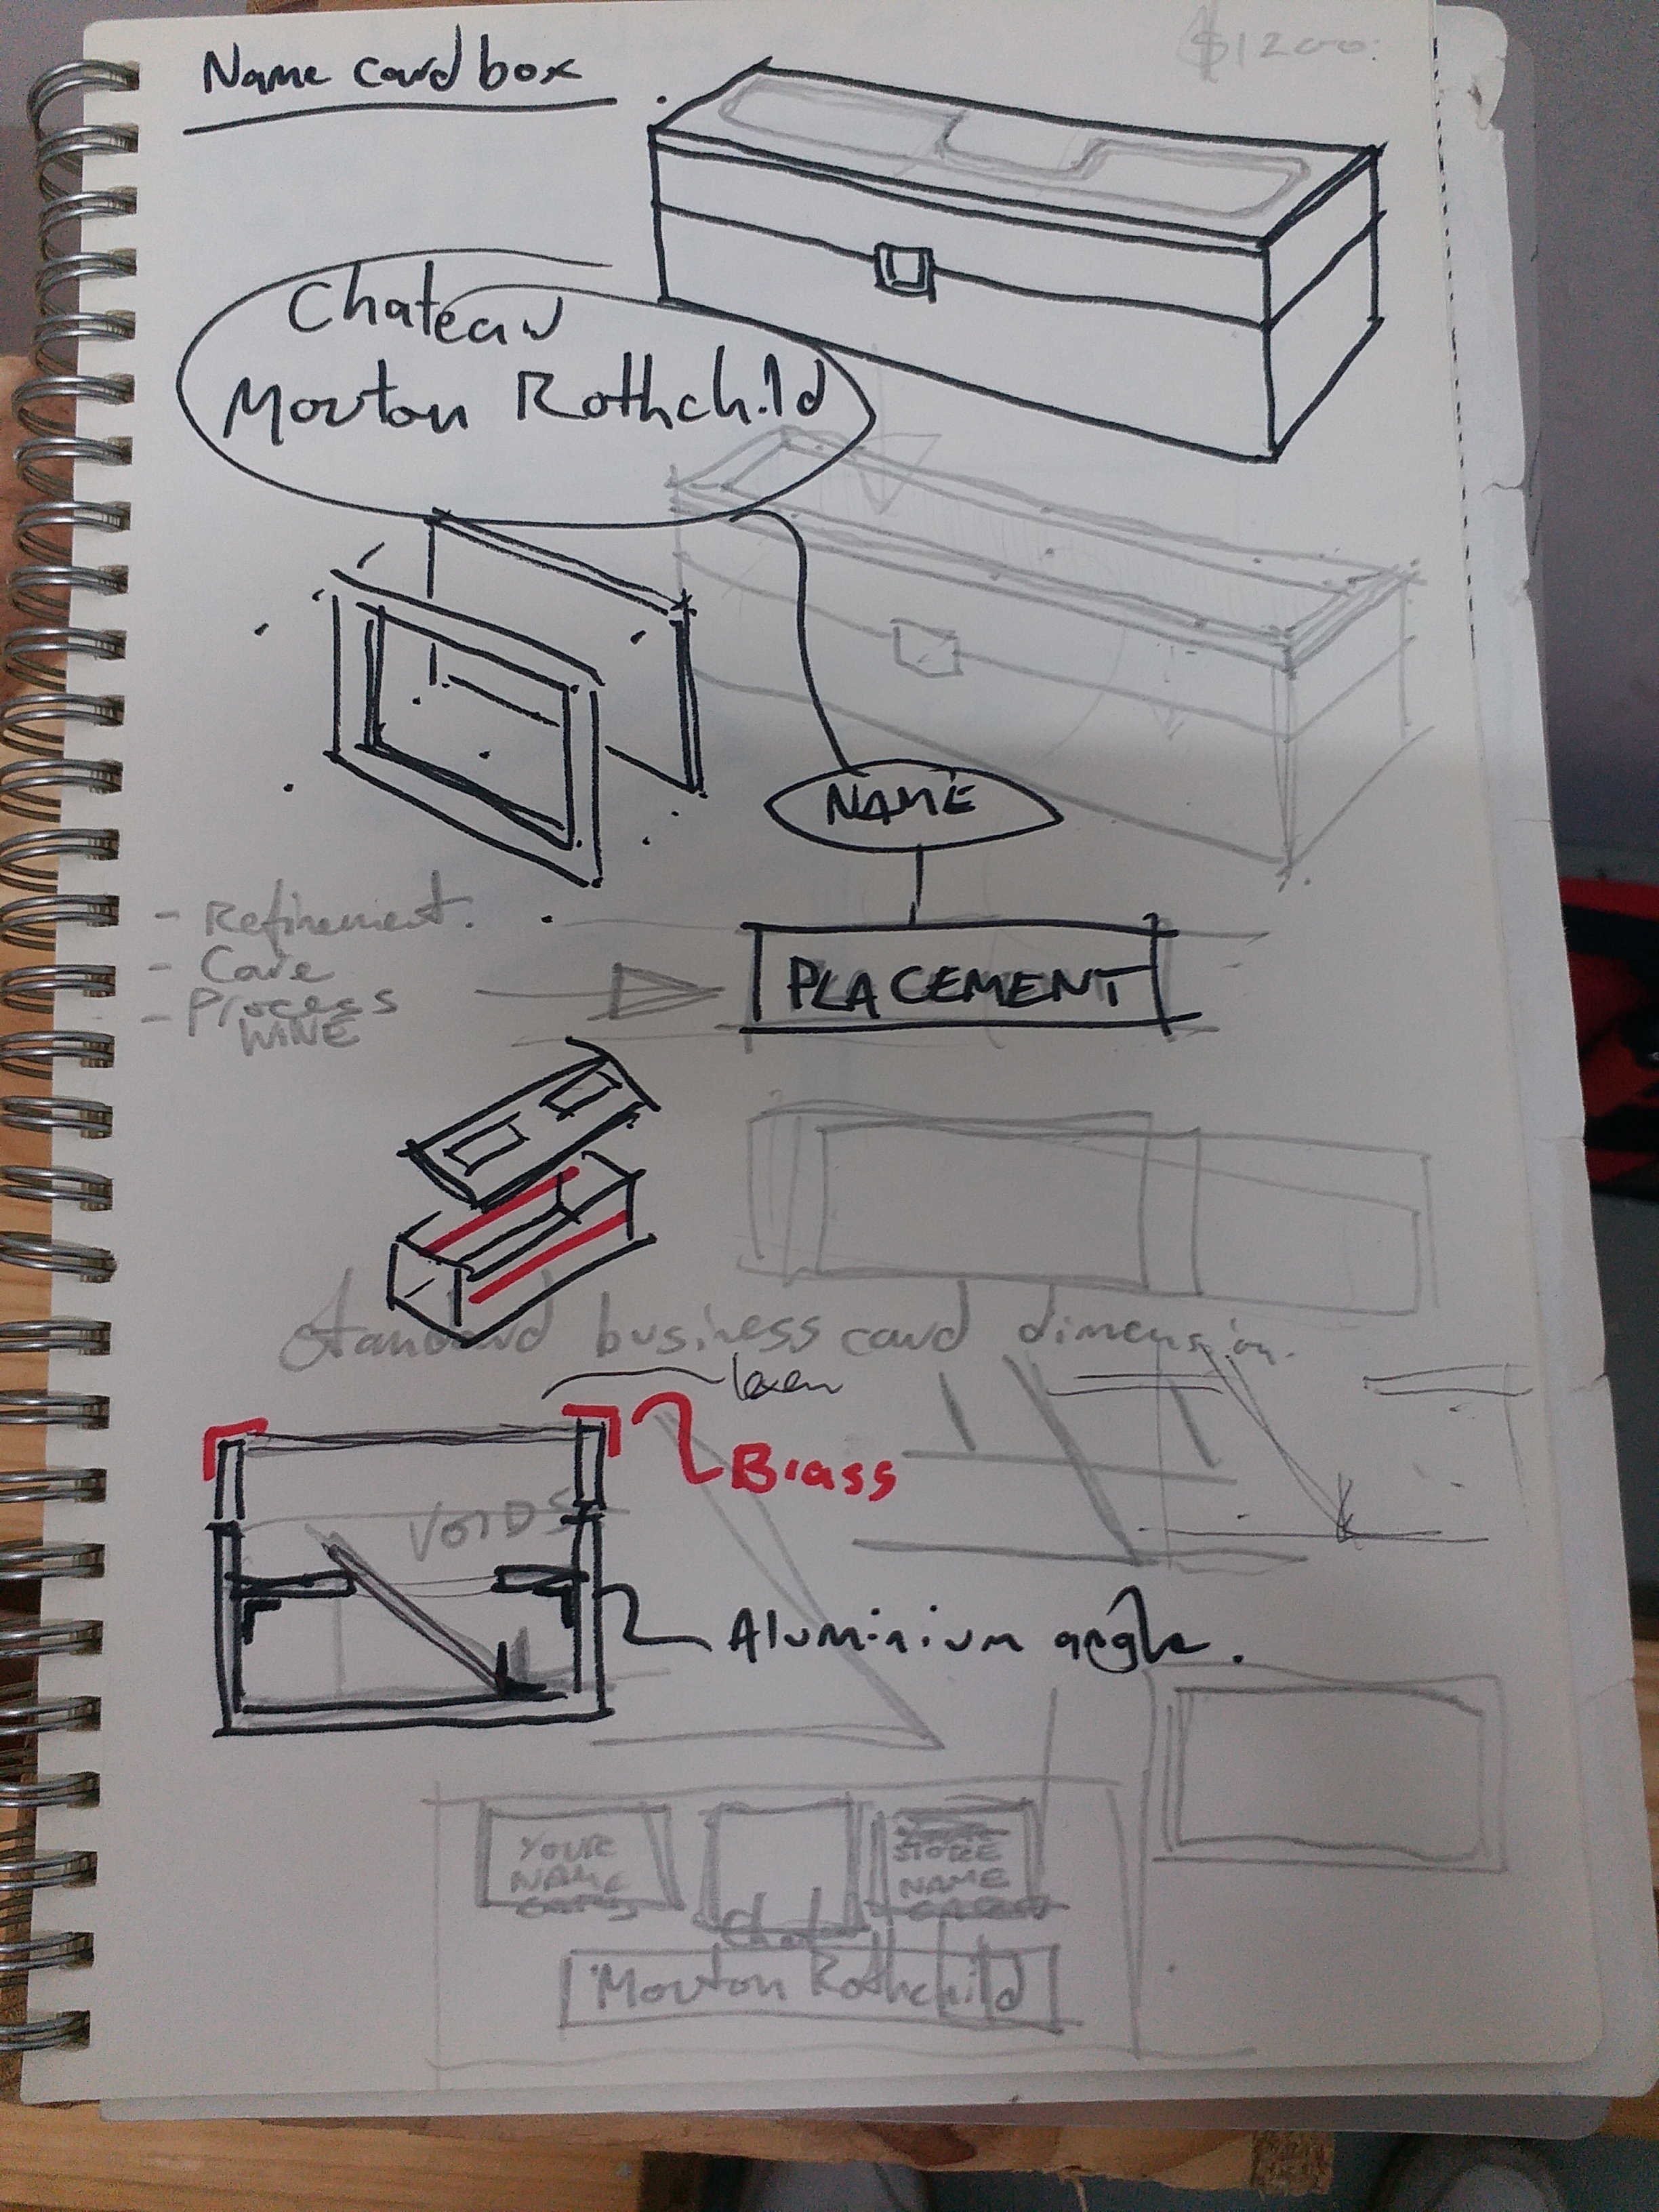 Name card box
$1200.
Chateau
Mouton Rothchild
NAME
- Refinement.
- Care
- Process
WINE
PLACEMENT
Standard business card dimension.
Brass
VOIDS
Aluminium angle.
YOUR
NAME
CARDS
STORE
NAME
CARDS
Chateau
Mouton Rothchild